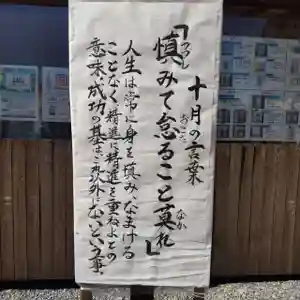 十月の言葉
「慎みて怠ること莫れ」
つつし
おこた
なか
人生は常に身を慎み、なまける
ことなく精進に精進を重ねよとの
意味、成功の基はこれ以外にないという事、